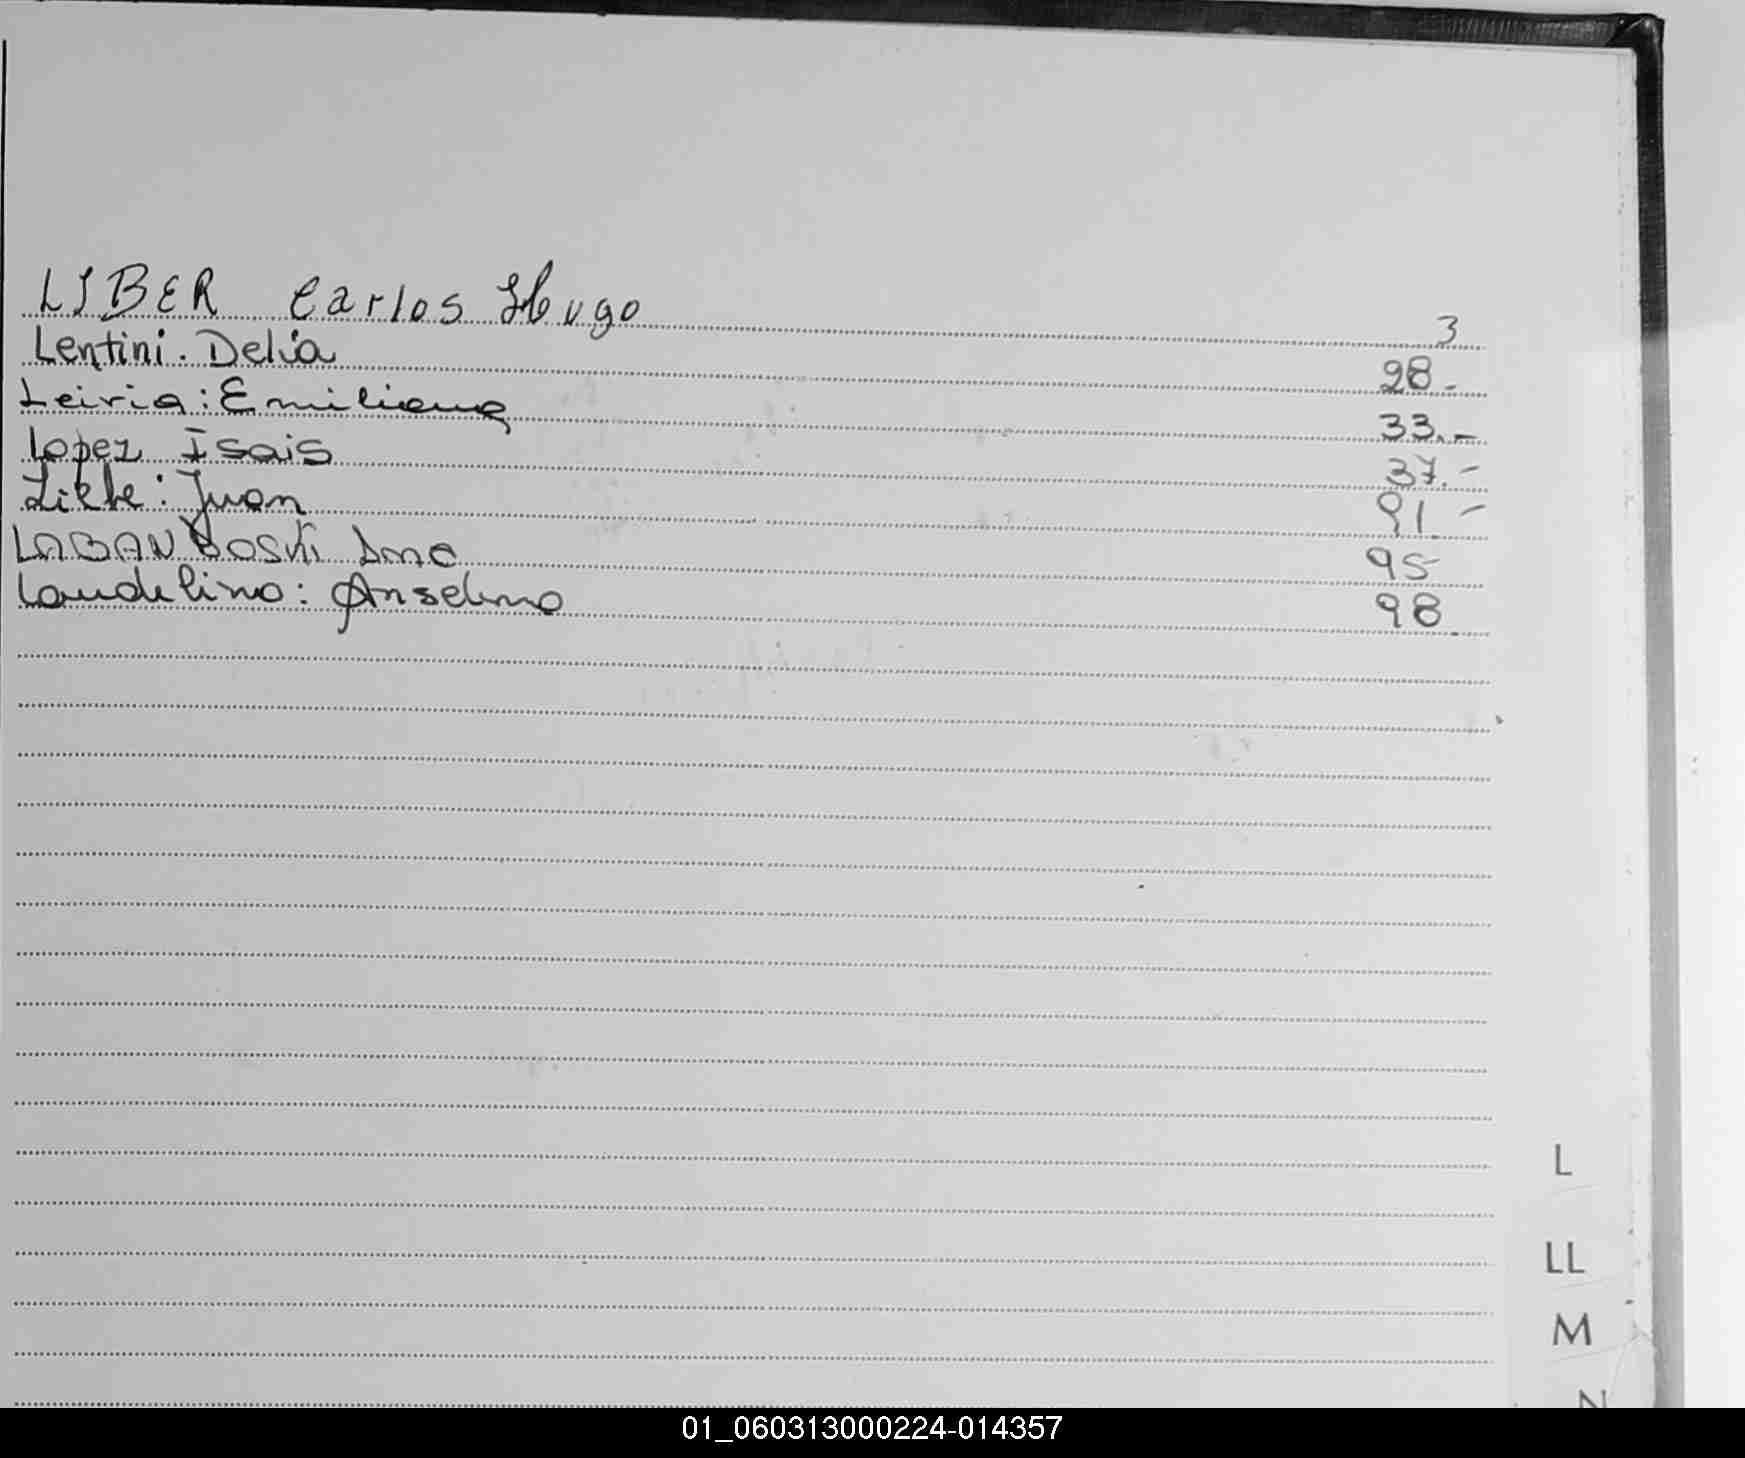 LIBER Carlos Hugo 3
Lentini. Delia 28.-
Leiria: Emiliana 33.-
Lopez Isais 37.-
Juan 91.-
95
Laudelino: Anselmo 98.
L
LL
M
N
01_060313000224-014357